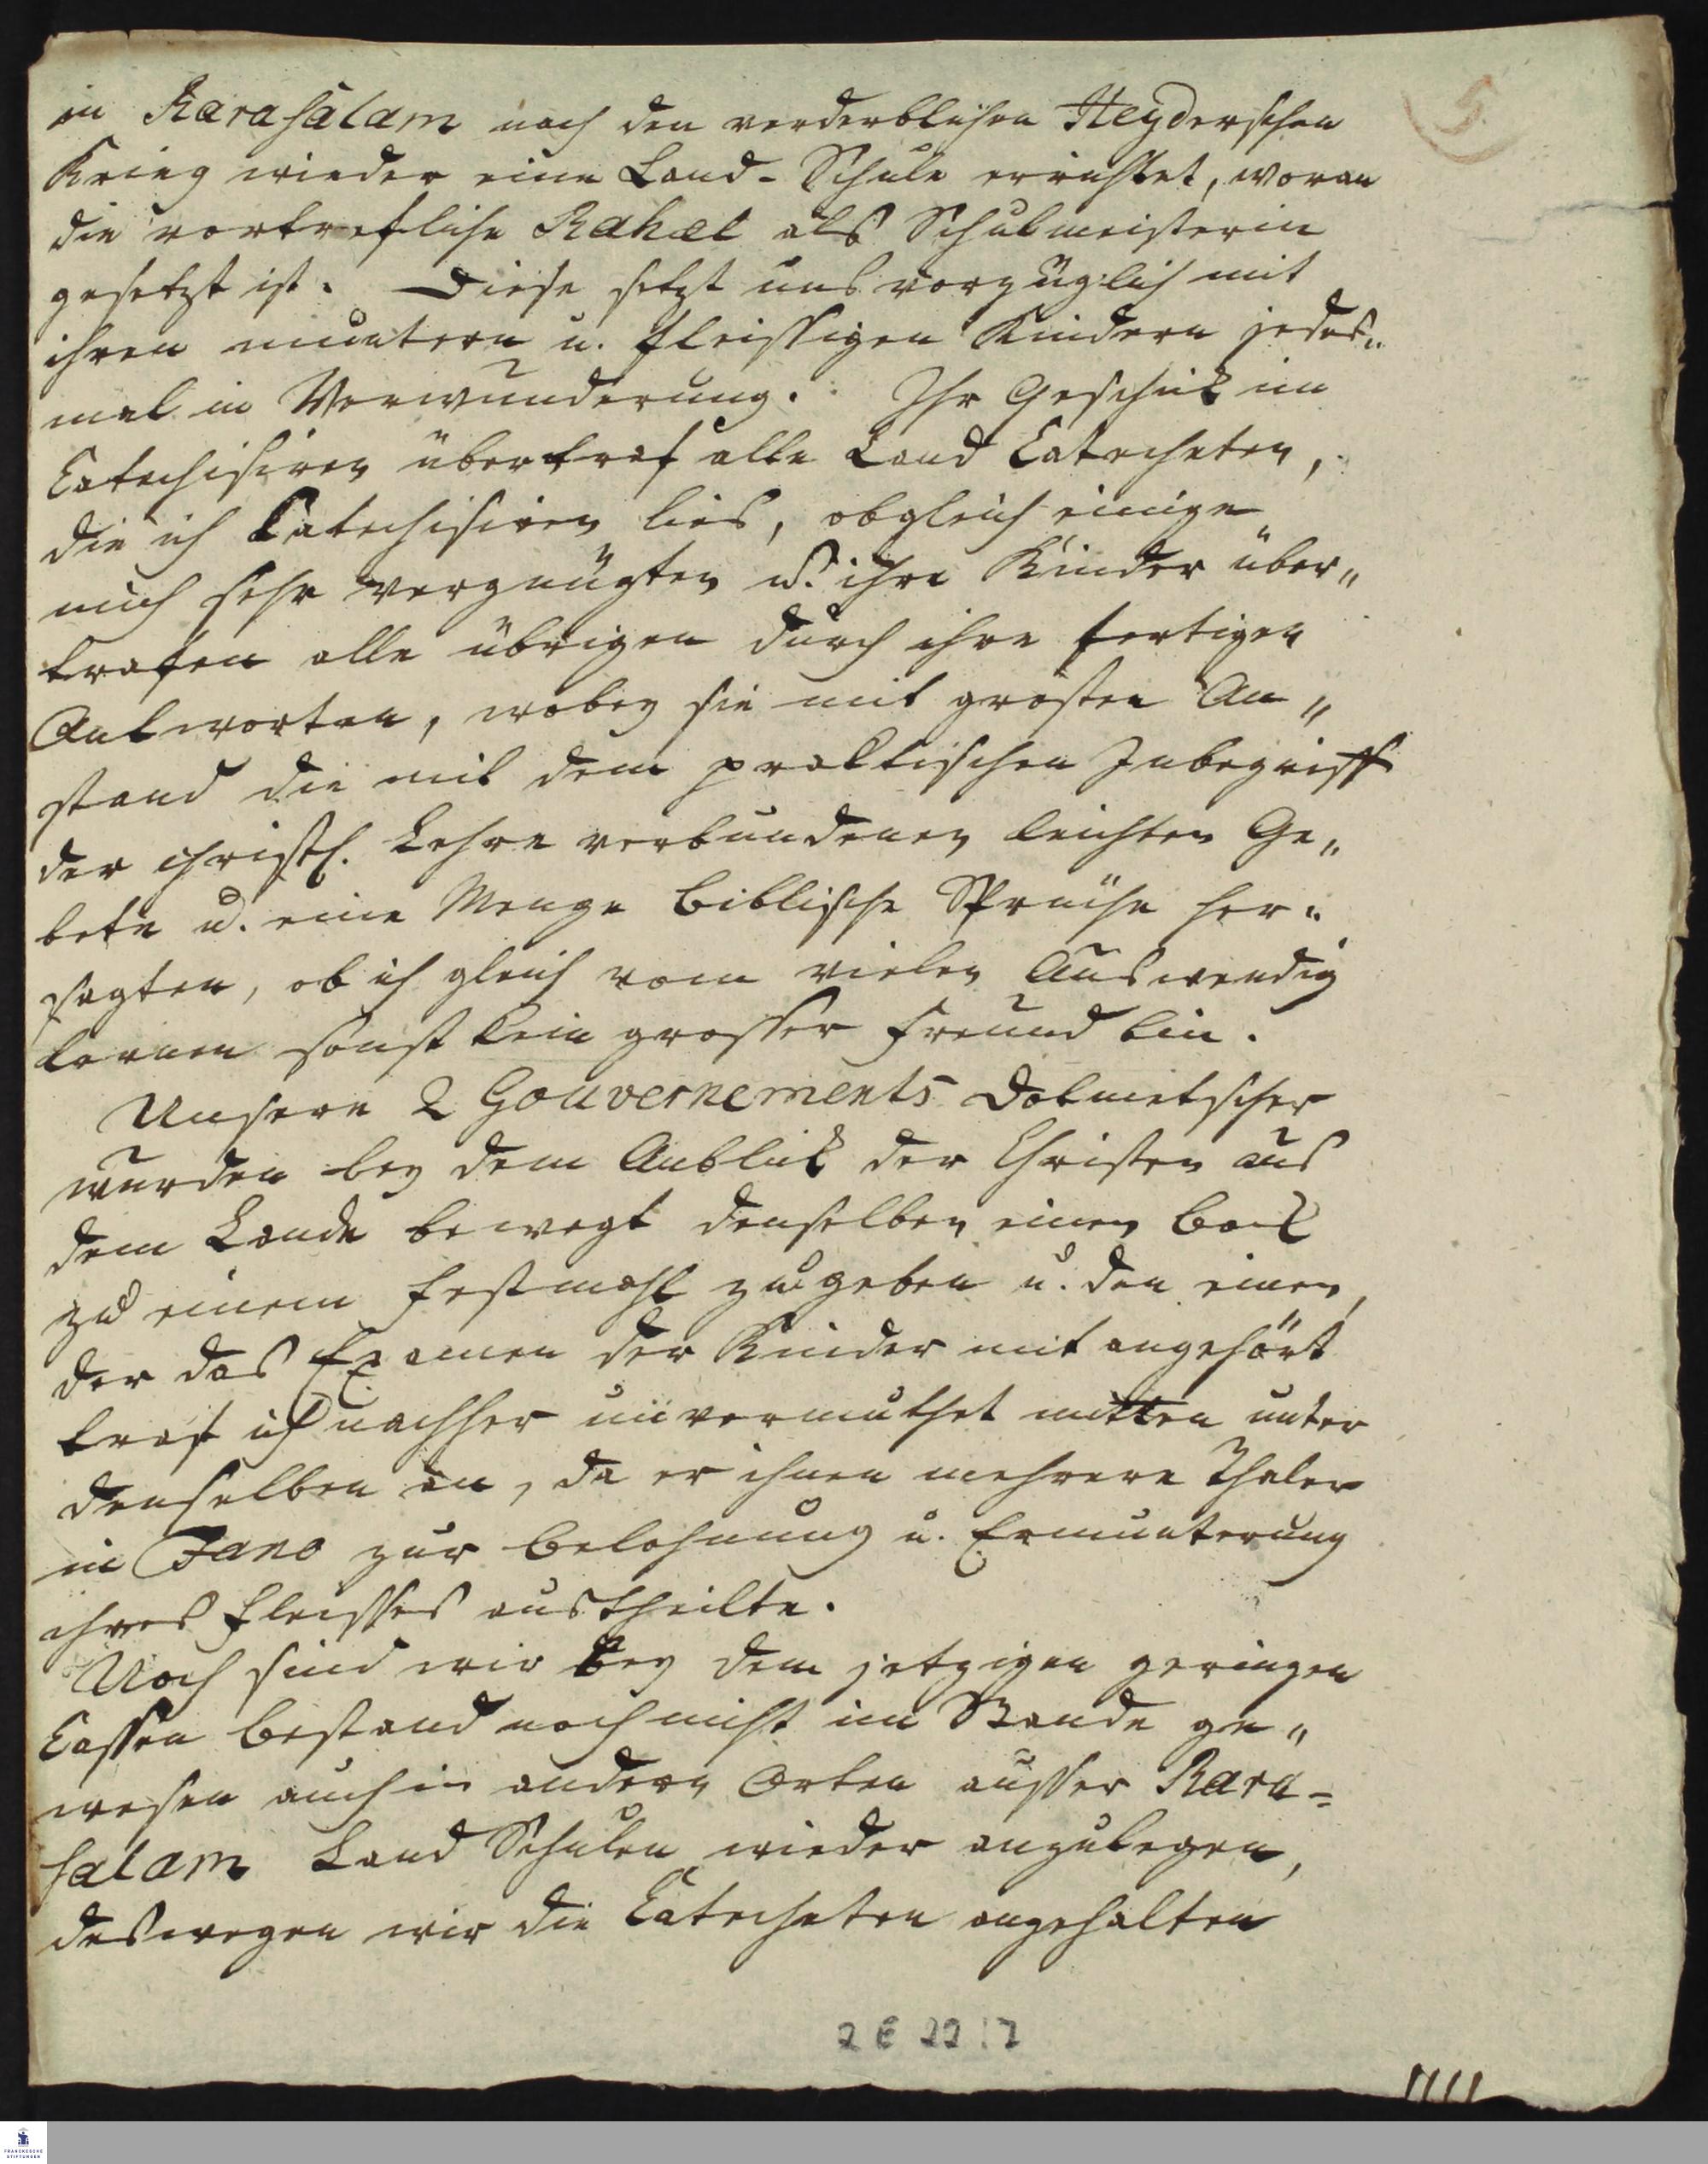 in Karasalam nach den verderblichen Heyderschen
Krieg wieder eine Land-Schule errichtet, woran
die vortrefliche Rahel als Schulmeisterin
gesetzt ist. Diese setzt uns vorzüglich mit
ihren muntern u. fleissigen Kindern jedes„
mal in Verwunderung. Ihr Geschik im
Catechisiren übertraf alle Land Catecheten,
die ich Catechisiren lies, obgleich einige
mich sehr vergnügten u. ihre Kinder über„
trafen alle übrigen durch ihre fertigen
Antworten, wobey sie mit grosten An„
stand die mit dem praktischen Inbegriff
der christl. Lehre verbundenen leichten Ge„
bete u. eine Menge Biblische Sprüche her„
sagten, ob ich gleich vom vielen Auswendig
lernen sonst kein grosser Freund bin.
Unsere 2 Gouvernements Dolmetscher
wurden bey dem Anblik der Christen aus
dem Lande bewegt denselben einen Bok
zu einem Festmahl zu geben u. den einen,
der das Examen der Kinder mit angehört
traf ich nachher unvermuthet mitten unter
denselben an, da er ihnen mehrere Thaler
in Fano zur Belohnung u. Ermunterung
ihres Fleisses austheilte.
Noch sind wir bey dem jetzigen geringen
Cassen bestand noch nicht im Stande ge„
wesen auch in andern Orten ausser Kara-
salam Land Schulen wieder anzulegen,
deswegen wir die Catecheten angehalten
5.
2 E 22 : 7
FRANCKESCHE
STIFTUNGEN